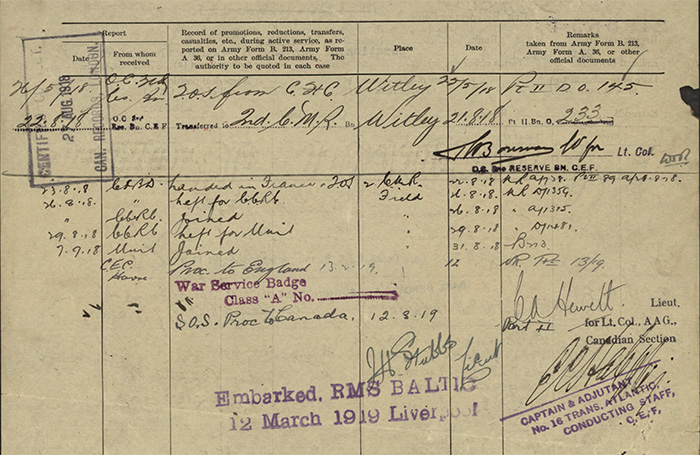 Report
Record of promotions, reductions, transfers, casualties, etc., during active service, as reported on Army Form B. 213, Army Form A. 36, or in other official documents. The authority to be quoted in each case
Place
Date
Remarks
taken from Army Form B. 213, Army Form A. 36, or other official documents
Date
From whom received
CAN. RECORDS, LONDON.
AUG 1919
26/5/18 O.C. T.O.S. from Witley 22/5/18 Pt II D.O. 145
22.8.18 O.C Res. Bn. C.E.F. Transferred to 2nd. C.M.R. Bn Witley 21.8.18 Pt II.Bn. O, 233
Lt. Col.
O.C. RESERVE BN. C.E.F.
23.8.18 Landed in France 2 C.M.R. 22.8.18
26.8.18 " Left for CCRC Field 26.8.18
" CCRC Joined " 26.8.18 "
29.8.18 CCRC Left for Unit " 29.8.18 "
7.9.18 Unit Joined " 31.8.18
C.E.C. Havre Proc. to England 13.2.19. 12 NR 13/19.
War Service Badge
Class "A" No.
S.O.S. Proc to Canada. 12.3.19 Part II
Hewett. Lieut,
for Lt. Col., A.A.G.,
Canadian Section
Stubbs Lieut
Embarked, RMS BALTIC
12 March 1919 Liverpool
CAPTAIN & ADJUTANT
No. 16 TRANS. ATLANTIC.
CONDUCTING STAFF,
C.E.F.